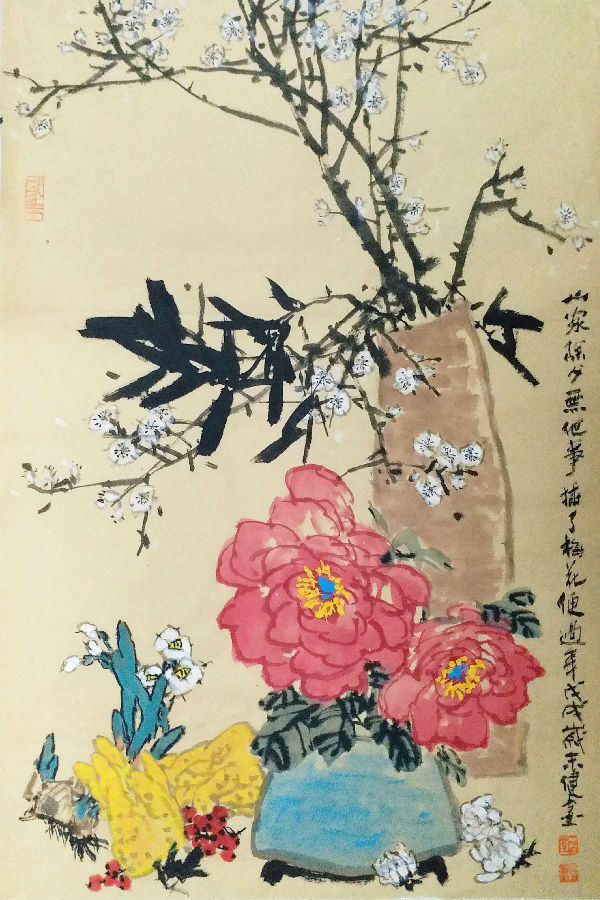 山家除夕無他事插了梅花便過年戊戌歲末健金